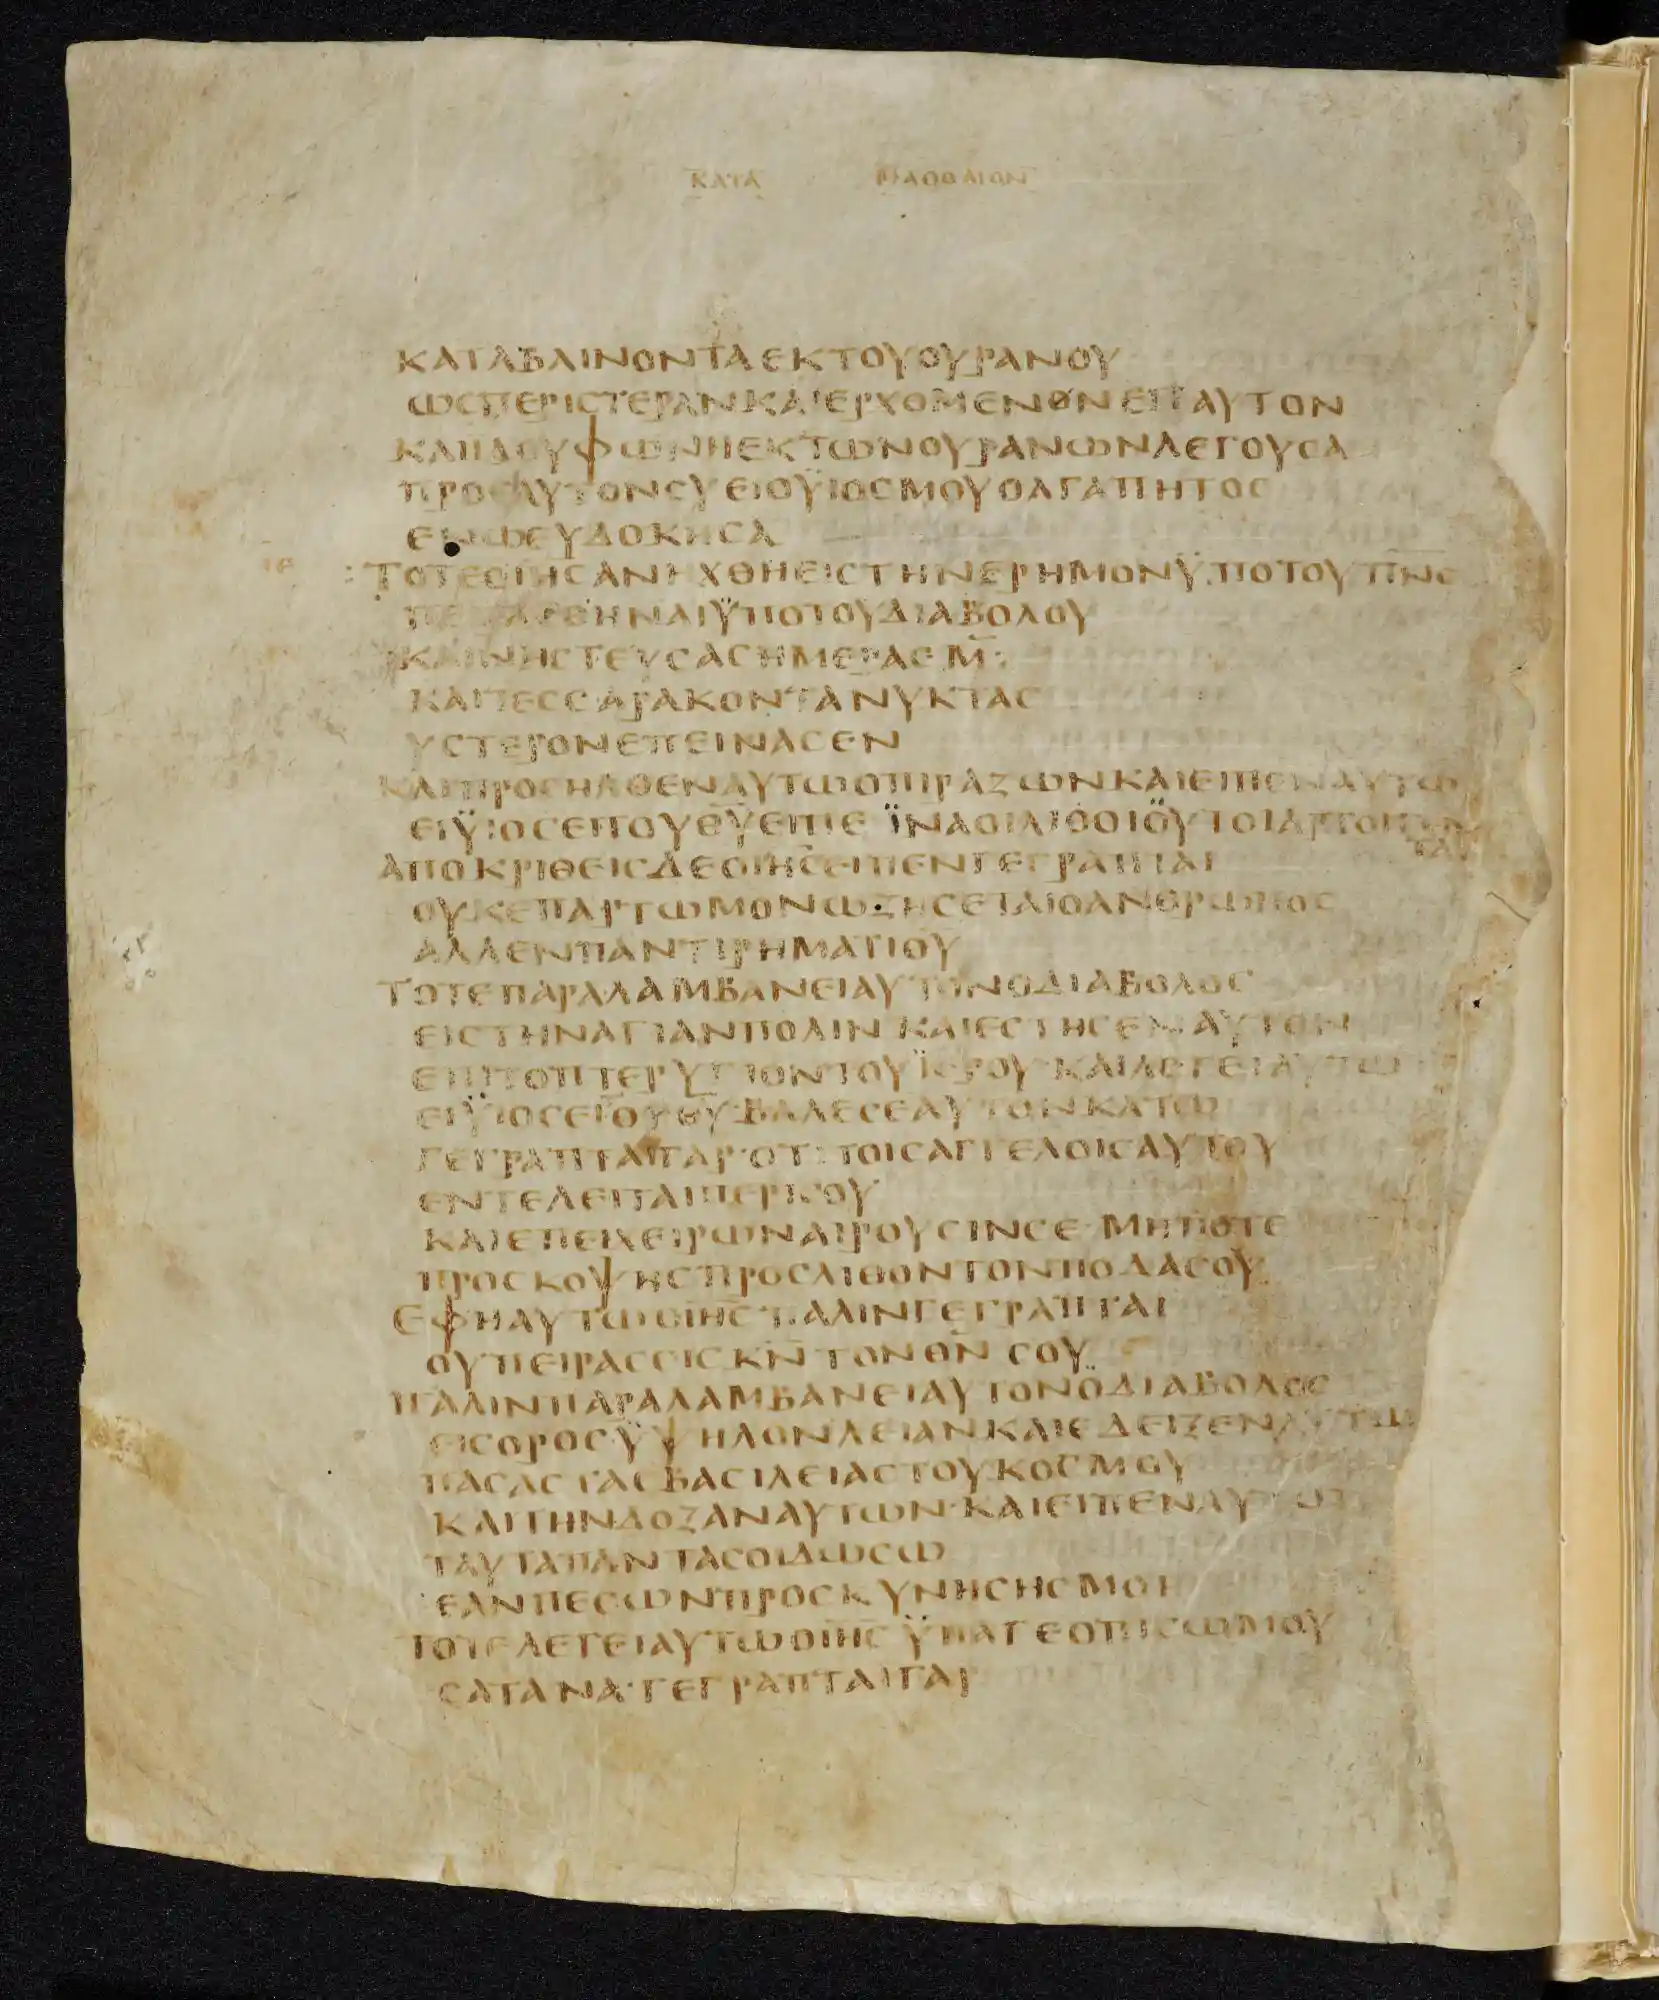 ΚΑΤΑ ΜΑΘΘΑΙΟΝ
ΚΑΤΑΒΑΙΝΟΝΤΑΕΚΤΟΥΟΥΡΑΝΟΥ
ΩСΠΕΡΙСΤΕΡΑΝΚΑΙΕΡΧΟΜΕΝΟΝΕΠΑΥΤΟΝ
ΚΑΙΙΔΟΥΦΩΝΗΕΚΤΩΝΟΥΡΑΝΩΝΛΕΓΟΥСΑ
ΠΡΟСΑΥΤΟΝСΥΕΙΟΫΙΟСΜΟΥΟΑΓΑΠΗΤΟС
ΕΝΩΕΥΔΟΚΗСΑ
ΙΕ :ΤΟΤΕΟΙΗСΑΝΗΧΘΗΕΙСΤΗΝΕΡΗΜΟΝΫΠΟΤΟΥΠΝС
ΠΕΙΡΑСΘΗΝΑΙΫΠΟΤΟΥΔΙΑΒΟΛΟΥ
ΚΑΙΝΗСΤΕΥСΑСΗΜΕΡΑСΜ̅:
ΚΑΙΤΕССΑΡΑΚΟΝΤΑΝΥΚΤΑС
ΥСΤΕΡΟΝΕΠΕΙΝΑСΕΝ
ΚΑΙΠΡΟСΗΛΘΕΝΑΥΤΩΟΠΙΡΑΖΩΝΚΑΙΕΙΠΕΝΑΥΤΩ
ΕΙΫΙΟСΕΙΤΟΥΘ̅Υ̅ΕΙΠΕ ΪΝΑΟΙΛΙΘΟΙΟΥΤΟΙΑΡΤΟΙ
ΤΑΙ
ΑΠΟΚΡΙΘΕΙСΔΕΟΙΗСΕΙΠΕΝΓΕΓΡΑΠΤΑΙ
ΟΥΚΕΠΑΡΤΩΜΟΝΩΖΗСΕΤΑΙΟΑΝΘΡΩΠΟС
ΑΛΛΕΝΠΑΝΤΙΡΗΜΑΤΙΘΥ
ΤΟΤΕΠΑΡΑΛΑΜΒΑΝΕΙΑΥΤΟΝΟΔΙΑΒΟΛΟС
ΕΙСΤΗΝΑΓΙΑΝΠΟΛΙΝ ΚΑΙΕСΤΗСΕΝΑΥΤΟΝ
ΕΠΙΤΟΠΤΕΡΥΓΙΟΝΤΟΥΪΕΡΟΥ·ΚΑΙΛΕΓΕΙΑΥΤΩ
ΕΙΫΙΟСΕΙΤΟΥΘ̅Υ̅·ΒΑΛΕСΕΑΥΤΟΝΚΑΤΩ
ΓΕΓΡΑΠΤΑΙΓΑΡ·ΟΤΙΤΟΙСΑΓΓΕΛΟΙСΑΥΤΟΥ
ΕΝΤΕΛΕΙΤΑΙΠΕΡΙСΟΥ
ΚΑΙΕΠΕΙΧΕΙΡΩΝΑΙΡΟΥСΙΝСΕ·ΜΗΠΟΤΕ
ΠΡΟСΚΟΨΗСΠΡΟСΛΙΘΟΝΤΟΝΠΟΔΑСΟΥ
ΕΦΗΑΥΤΩΟΙΗСΠΑΛΙΝΓΕΓΡΑΠΤΑΙ
ΟΥΠΕΙΡΑСΕΙСΚ̅Ν̅ΤΟΝΘ̅Ν̅СΟΥ
ΠΑΛΙΝΠΑΡΑΛΑΜΒΑΝΕΙΑΥΤΟΝΟΔΙΑΒΟΛΟС
ΕΙСΟΡΟСΫΨΗΛΟΝΛΕΙΑΝΚΑΙΕΔΕΙΞΕΝΑΥΤΩ
ΠΑСΑСΤΑСΒΑСΙΛΕΙΑСΤΟΥΚΟСΜΟΥ
ΚΑΙΤΗΝΔΟΞΑΝΑΥΤΩΝ·ΚΑΙΕΙΠΕΝΑΥΤΩ
ΤΑΥΤΑΠΑΝΤΑСΟΙΔΩСΩ
ΕΑΝΠΕСΩΝΠΡΟСΚΥΝΗСΗСΜΟΙ
ΤΟΤΕΛΕΓΕΙΑΥΤΩΟΙΗС ΫΠΑΓΕΟΠΙСΩΜΟΥ
СΑΤΑΝΑ·ΓΕΓΡΑΠΤΑΙΓΑΡ